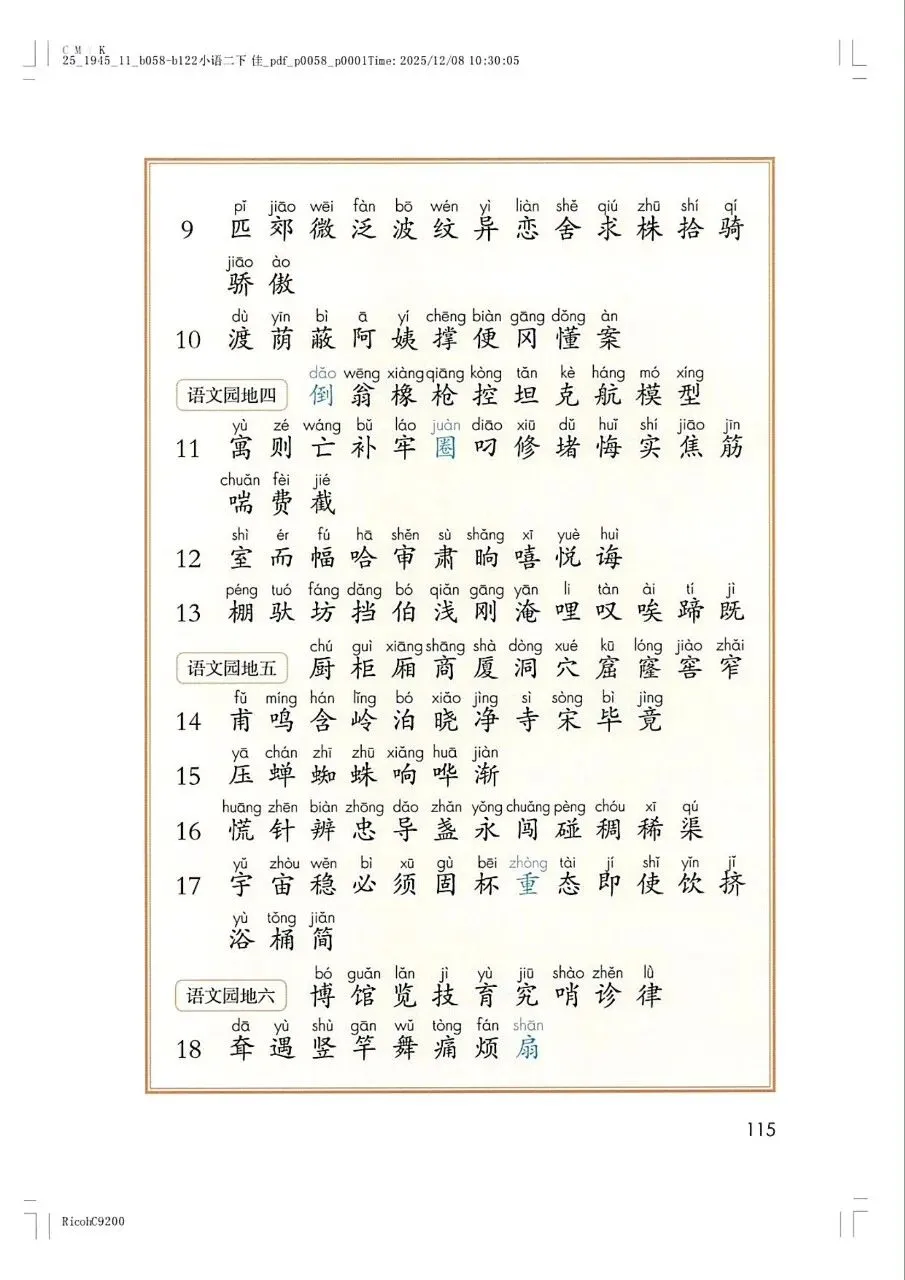 C M K
25_1945_11_b058-b122小语二下 佳_pdf_p0058_p0001Time: 2025/12/08 10:30:05
pǐ jiāo wēi fàn bō wén yì liàn shě qiú zhū shí qí
9 匹 郊 微 泛 波 纹 异 恋 舍 求 株 拾 骑
jiāo ào
骄 傲
dù yīn bì ā yí chēng biàn gāng dǒng àn
10 渡 荫 蔽 阿 姨 撑 便 冈 懂 案
dǎo wēng xiàng qiāng kòng tǎn kè háng mó xíng
语文园地四 倒 翁 橡 枪 控 坦 克 航 模 型
yù zé wáng bǔ láo juàn diāo xiū dǔ huǐ shí jiāo jīn
11 寓 则 亡 补 牢 圈 叼 修 堵 悔 实 焦 筋
chuǎn fèi jié
喘 费 截
shì ér fú hā shěn sù shǎng xī yuè huì
12 室 而 幅 哈 审 肃 晌 嘻 悦 诲
péng tuó fáng dǎng bó qiǎn gāng yān li tàn ài tí jì
13 棚 驮 坊 挡 伯 浅 刚 淹 哩 叹 唉 蹄 既
chú guì xiāng shāng shà dòng xué kū lóng jiào zhǎi
语文园地五 厨 柜 厢 商 厦 洞 穴 窟 窿 窖 窄
fǔ míng hán lǐng bó xiǎo jìng sì sòng bì jìng
14 甫 鸣 含 岭 泊 晓 净 寺 宋 毕 竟
yā chán zhī zhū xiǎng huā jiàn
15 压 蝉 蜘 蛛 响 哗 渐
huāng zhēn biàn zhōng dǎo zhǎn yǒng chuǎng pèng chóu xī qú
16 慌 针 辨 忠 导 盏 永 闯 碰 稠 稀 渠
yǔ zhòu wěn bì xū gù bēi zhòng tài jí shǐ yǐn jǐ
17 宇 宙 稳 必 须 固 杯 重 态 即 使 饮 挤
yù tǒng jiǎn
浴 桶 简
bó guǎn lǎn jì yù jiū shào zhěn lǜ
语文园地六 博 馆 览 技 育 究 哨 诊 律
dā yù shù gān wǔ tòng fán shān
18 耷 遇 竖 竿 舞 痛 烦 扇
115
RicohC9200